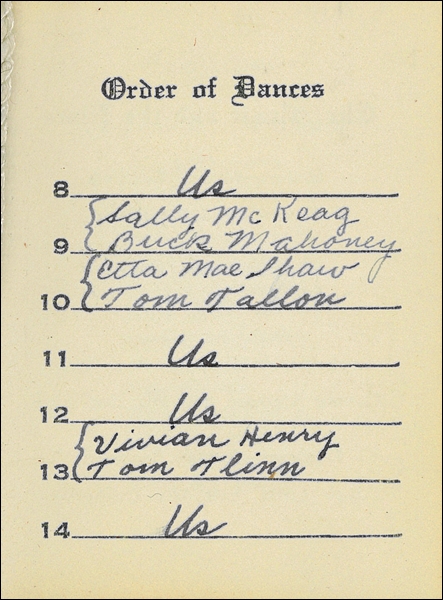 Order of Dances
8 Us
Sally McKeag
9 Buck Mahoney
Etta Mae Shaw
10 Tom Tallon
11 Us
12 Us
Vivian Henry
13 Tom Flinn
14 Us